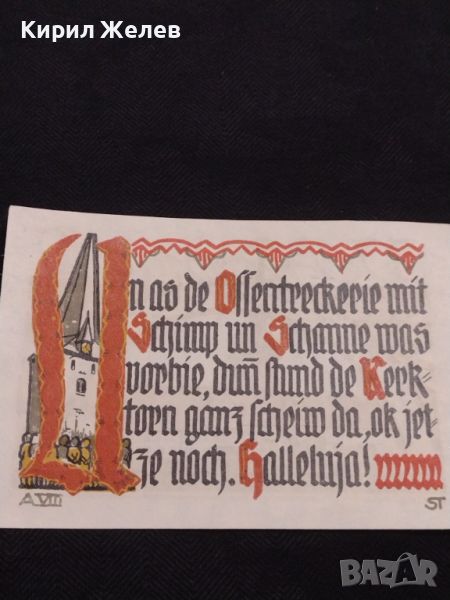 Кирил Желев
Un as de Ossentreckerie mit
Schimp un Schanne was
vorbie, dunn stund de Kerk-
torn ganz scheiw da, ok jet-
ze noch. Halleluja!
A VIII
ST
BAZAR